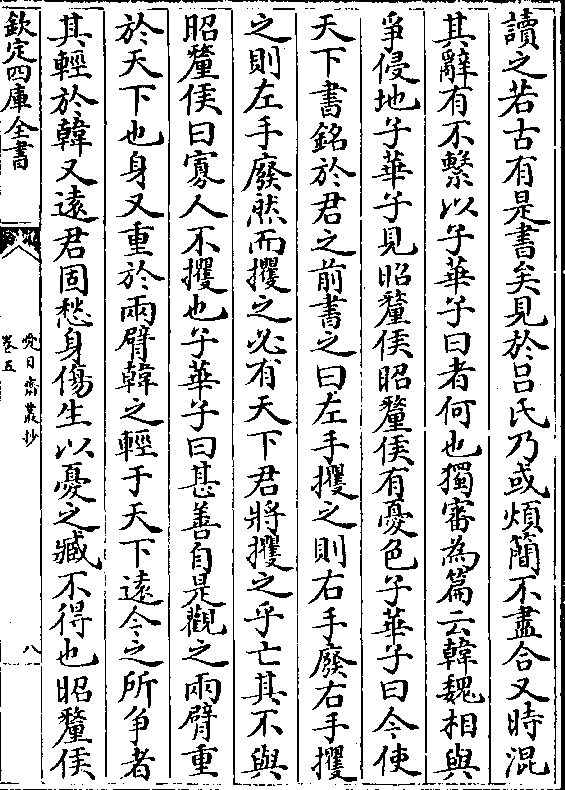 讀之若古有是書矣見於吕氏乃或煩簡不盡合又時混
其辭有不繫以子華子曰者何也獨審為篇云韓魏相與
爭侵地子華子見昭釐侯昭釐侯有憂色子華子曰今使
天下書銘於君之前書之曰左手攫之則右手廢右手攫
之則左手廢然而攫之必有天下君將攫之乎亡其不與
昭釐侯曰寡人不攫也子華子曰甚善自是觀之兩臂重
於天下也身又重於兩臂韓之輕于天下遠今之所争者
其輕於韓又遠君固愁身傷生以憂之臧不得也昭釐侯
欽定四庫全書
愛日齋叢抄
卷五
八